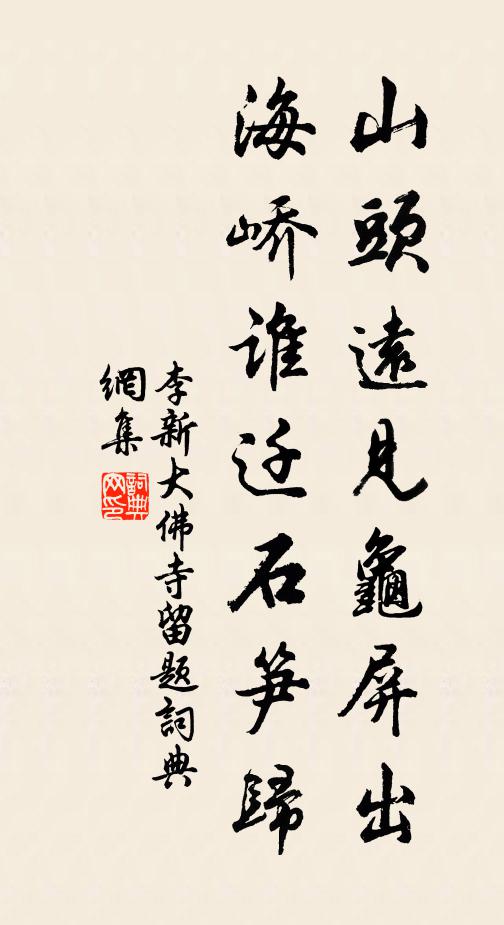 山頭遠見龜屏出
海嶠誰迁石笋歸
李新大佛寺留題詞典
網集
詞典网印